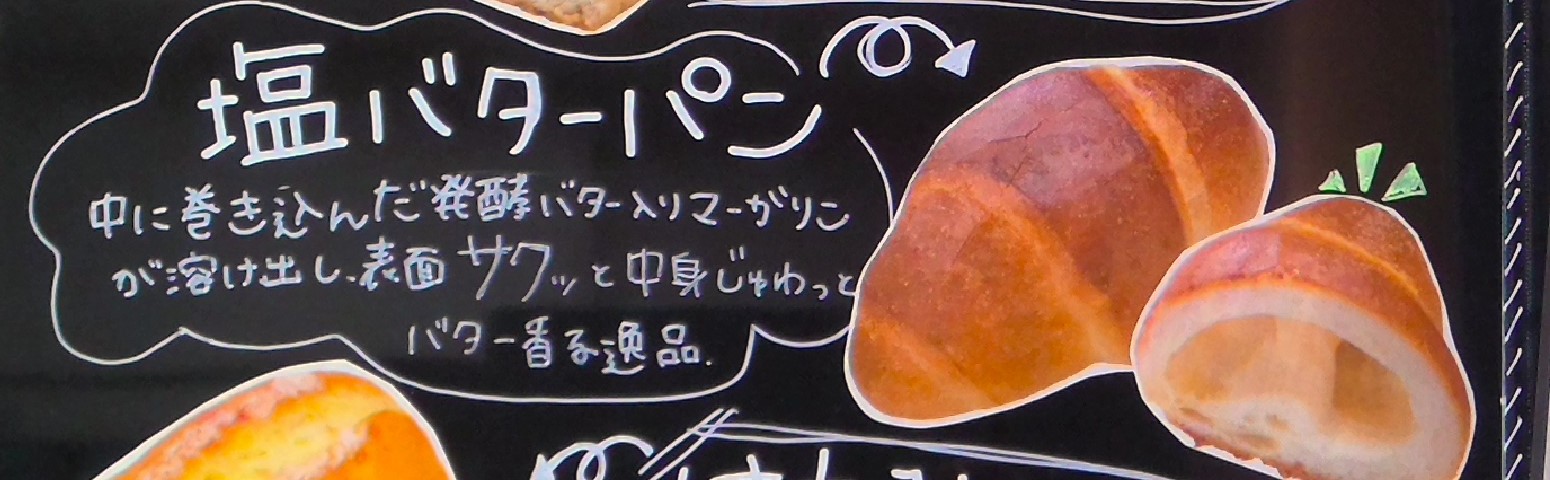 塩バターパン
中に巻き込んだ発酵バター入りマーガリン
が溶け出し、表面サクッと中身じゅわっと
バター香る逸品.